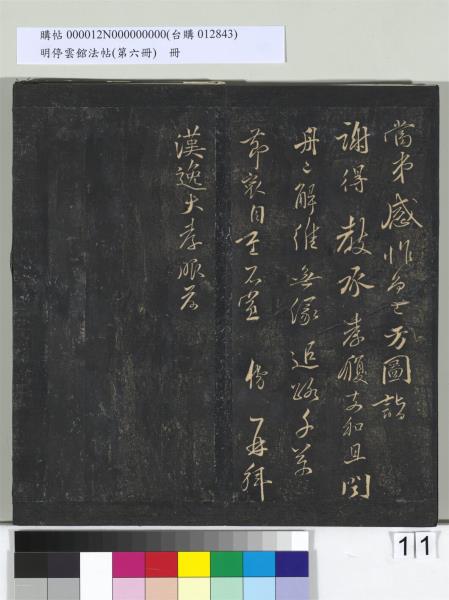 購帖 000012N000000000(台購 012843)
明停雲館法帖(第六冊) 冊
當感怍方圖詣
謝得教承孝履支和且聞
舟已解維無緣追路千萬
節哀自重不宣 再拜
漢逸大孝服前
11